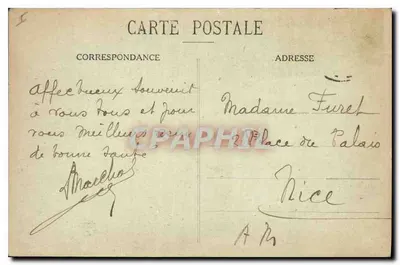 I
CARTE POSTALE
CORRESPONDANCE
ADRESSE
Affectueux souvenir
à vous tous et pour
vous meilleurs vœux
de bonne santé
Madame Furet
2 Place du Palais
Nice
A M
CPAPHIL